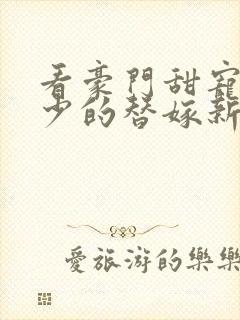 看豪門甜寵
少的替嫁新
愛旅游的樂樂